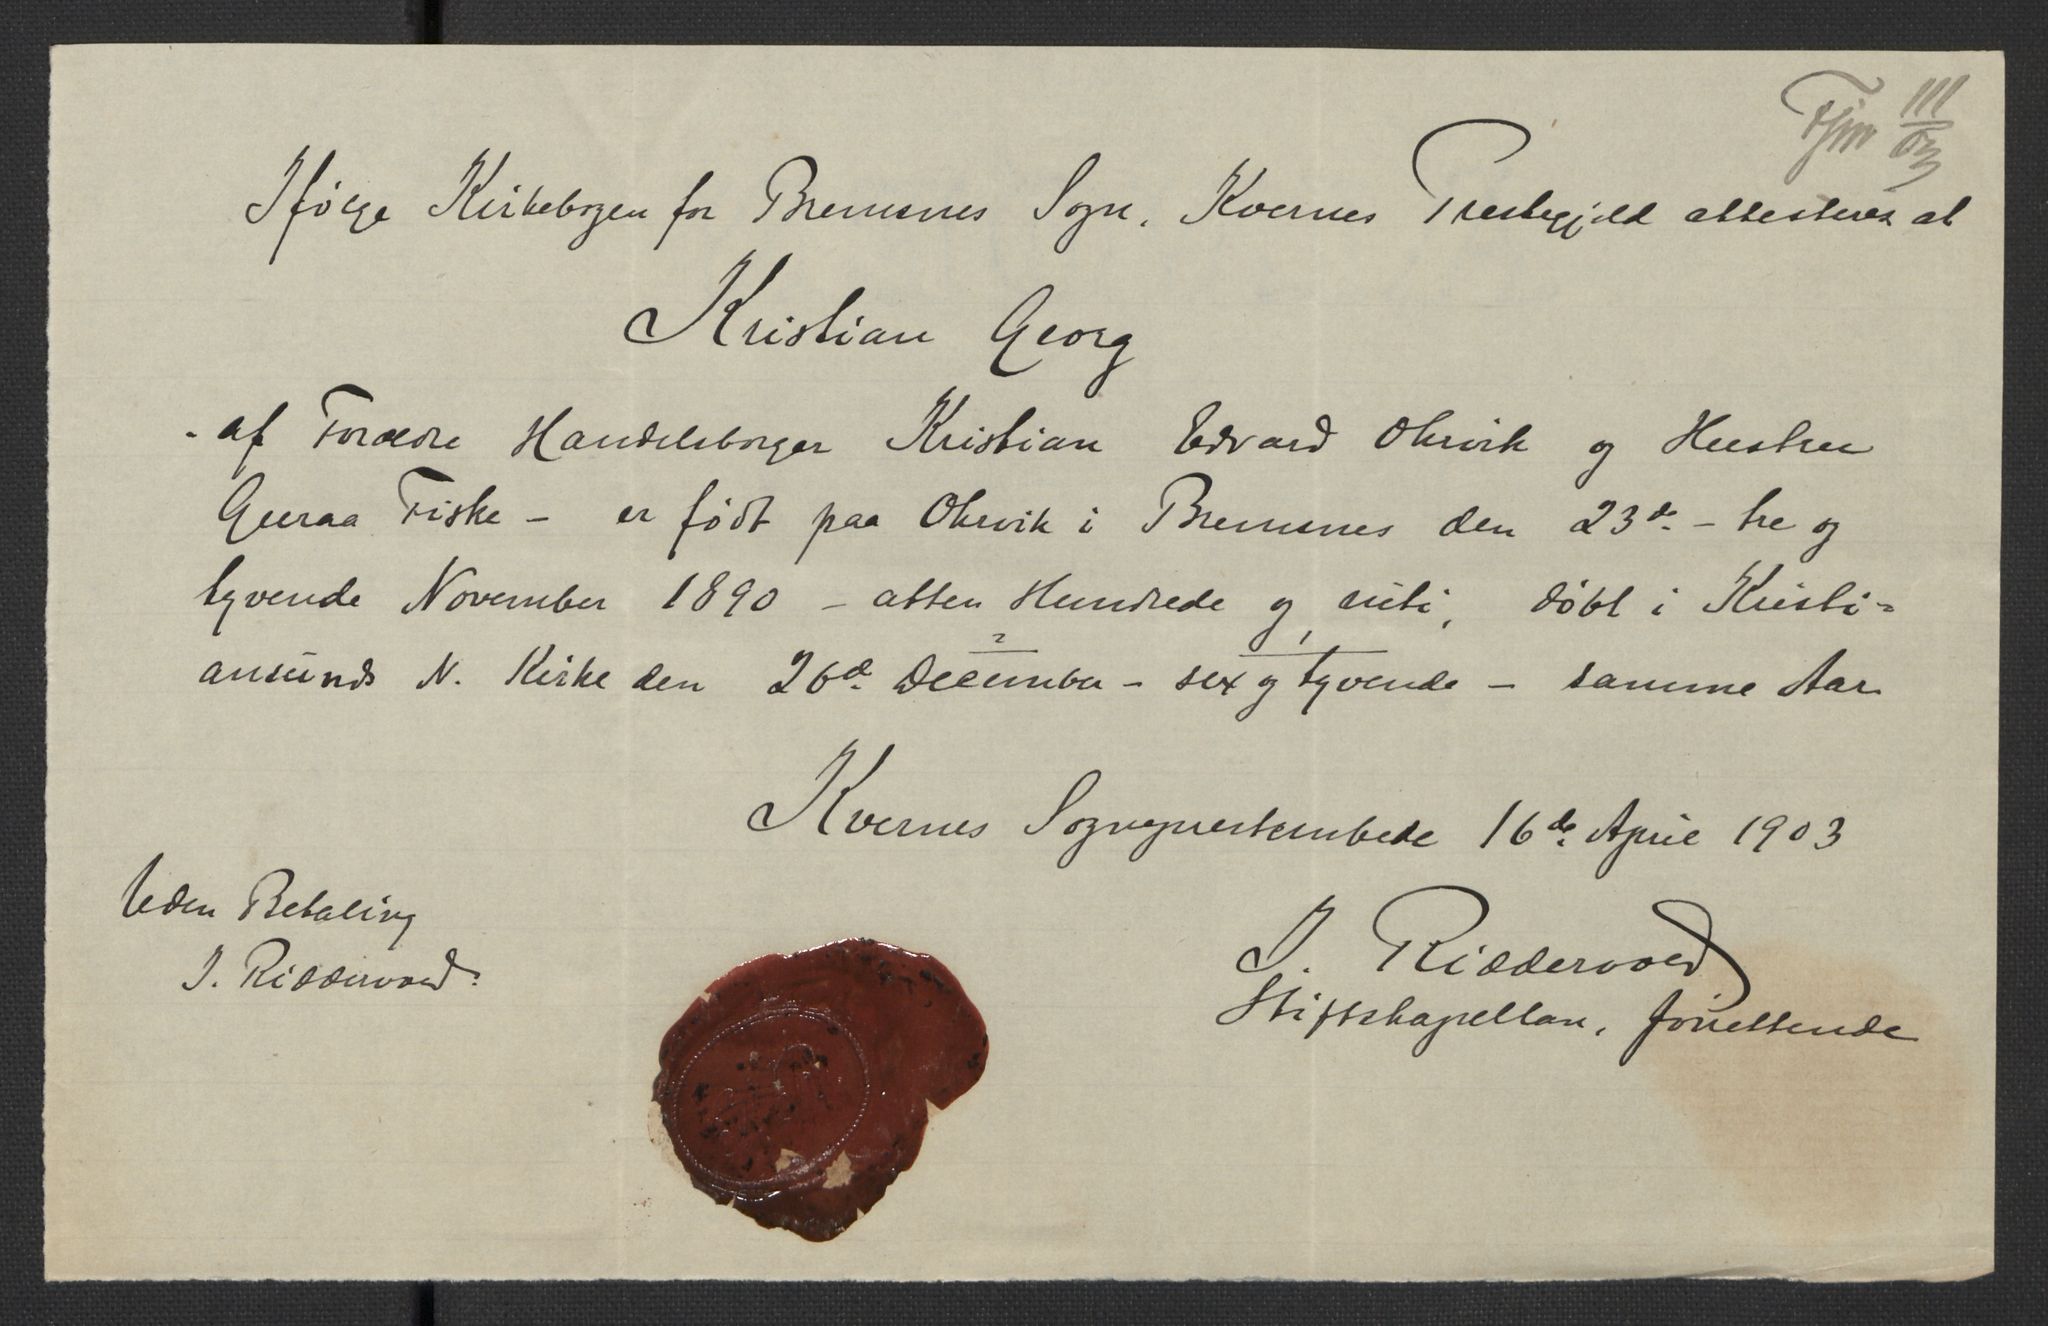 Fjm 111/03
Ifølge Kirkebogen for Bremsnes Sogn, Kvernes Præstegjeld attesteres at
Kristian Georg
- af Forældre Handelsborger Kristian Edvard Ohrvik og Hustru
Guraa Fiske – er født paa Ohrvik i Bremsnes den 23de – tre og
tyvende November 1890 – atten Hundrede og niti, døbt i Kristi=
ansunds N. Kirke den 26de December – sex og tyvende – samme Aar.
Kvernes Sogneprestembede 16de April 1903
Uden Betaling
J. Riddervold.
J. Riddervold
Stiftskapellan, forrettende